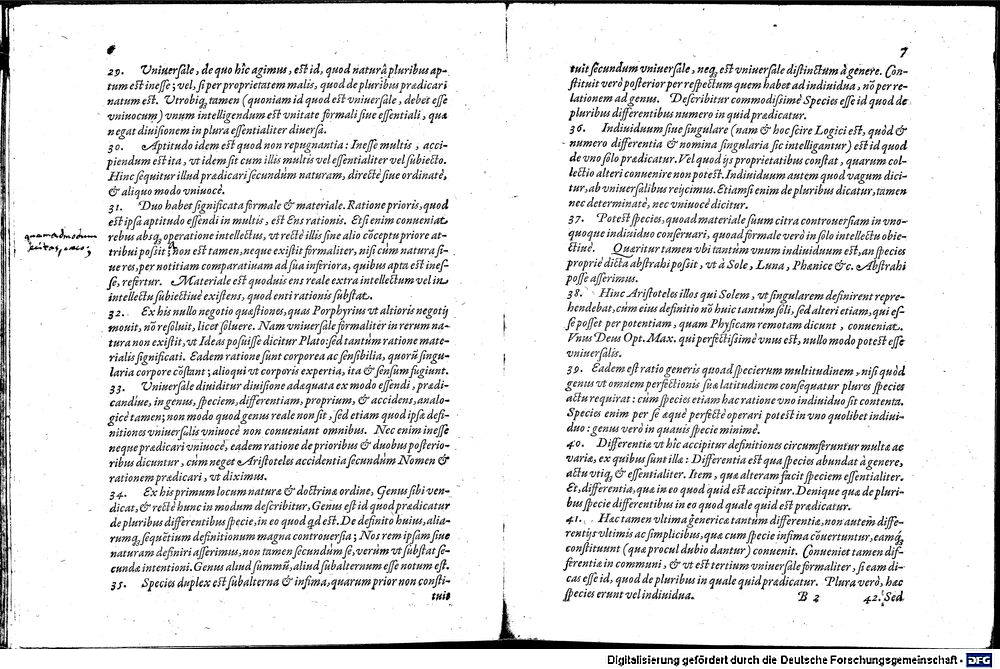 6
29. Vniuersale, de quo hîc agimus, est id, quod naturâ pluribus ap-
tum est inesse; vel, si per proprietatem malis, quod de pluribus prædicari
natum est. Vtrobiq, tamen (quoniam id quod est vniuersale, debet esse
vniuocum) vnum intelligendum est vnitate formali siue essentiali, quæ
negat diuisionem in plura essentialiter diuersa.
30. Aptitudo idem est quod non repugnantia: Inesse multis, acci-
piendum est ita, vt idem sit cum illis multis vel essentialiter vel subiecto.
Hinc sequitur illud prædicari secundùm naturam, directè siue ordinatè,
& aliquo modo vniuocè.
31. Duo habet significata formale & materiale. Ratione prioris, quod
est ipsa aptitudo essendi in multis, est Ens rationis. Etsi enim conueniat
rebus absq, operatione intellectus, vt rectè illis sine alio cōceptu priore at-
tribui possit; non est tamen, neque existit formaliter, nisi cùm natura si-
ue res, per notitiam comparatiuam ad sua inferiora, quibus apta est ines-
se, refertur. Materiale est quoduis ens reale extra intellectum vel in
intellectu subiectiuè existens, quod enti rationis substat.
32. Ex his nullo negotio quæstiones, quas Porphyrius vt altioris negotij
mouit, nō resoluit, licet soluere. Nam vniuersale formaliter in rerum na-
tura non existit, vt Ideas posuisse dicitur Plato: sed tantùm ratione mate-
rialis significati. Eadem ratione sunt corporea ac sensibilia, quorū singu-
laria corpore cōstant; alioqui vt corporis expertia, ita & sensum fugiunt.
33. Vniuersale diuiditur diuisione adæquata ex modo essendi, prædi-
candiue, in genus, speciem, differentiam, proprium, & accidens, analo-
gicè tamen; non modo quod genus reale non sit, sed etiam quod ipsæ defi-
nitiones vniuersalis vniuocè non conueniant omnibus. Nec enim inesse
neque prædicari vniuocè, eadem ratione de prioribus & duobus posterio-
ribus dicuntur, cùm neget Aristoteles accidentia secundùm Nomen &
rationem prædicari, vt diximus.
34. Ex his primum locum naturæ & doctrinæ ordine, Genus sibi ven-
dicat, & rectè hunc in modum describitur, Genus est id quod prædicatur
de pluribus differentibus specie, in eo quod qd est. De definito huius, alia-
rumq, sequētium definitionum magna controuersia; Nos rem ipsam siue
naturam definiri asserimus, non tamen secundùm se, verùm vt substat se-
cundæ intentioni. Genus aliud summū, aliud subalternum esse notum est.
35. Species duplex est subalterna & infima, quarum prior non consti-
tuit
7
tuit secundum vniuersale, neq, est vniuersale distinctum à genere. Con-
stituit verò posterior per respectum quem habet ad indiuidua, nō per re-
lationem ad genus. Describitur commodissimè Species esse id quod de
pluribus differentibus numero in quid prædicatur.
36. Indiuiduum siue singulare (nam & hoc scire Logici est, quòd &
numero differentia & nomina singularia sic intelligantur) est id quod
de vno solo prædicatur. Vel quod ijs proprietatibus constat, quarum col-
lectio alteri conuenire non potest. Indiuiduum autem quod vagum dici-
tur, ab vniuersalibus reijcimus. Etiamsi enim de pluribus dicatur, tamen
nec determinatè, nec vniuocè dicitur.
37. Potest species, quoad materiale suum citra controuersiam in vno-
quoque indiuiduo conseruari, quoad formale verò in solo intellectu obie-
ctiuè. Quæritur tamen vbi tantùm vnum indiuiduum est, an species
propriè dicta abstrahi possit, vt à Sole, Luna, Phœnice &c. Abstrahi
posse asserimus.
38. Hinc Aristoteles illos qui Solem, vt singularem definirent repre-
hendebat, cùm eius definitio nō huic tantùm soli, sed alteri etiam, qui es-
se posset per potentiam, quam Physicam remotam dicunt, conueniat.
Vnus Deus Opt. Max. qui perfectissimè vnus est, nullo modo potest esse
vniuersalis.
39. Eadem est ratio generis quoad specierum multitudinem, nisi quòd
genus vt omnem perfectionis suæ latitudinem consequatur plures species
actu requirat: cùm species etiam hac ratione vno indiuiduo sit contenta.
Species enim per se æquè perfectè operari potest in vno quolibet indiui-
duo: genus verò in quauis specie minimè.
40. Differentiæ vt hîc accipitur definitiones circumferuntur multæ ac
variæ, ex quibus sunt illæ: Differentia est qua species abundat à genere,
actu vtiq, & essentialiter. Item, quæ alteram facit speciem essentialiter.
Et, differentia, quæ in eo quod quid est accipitur. Denique quæ de pluri-
bus specie differentibus in eo quod quale quid est prædicatur.
41. Hæc tamen vltima genericæ tantùm differentiæ, non autem diffe-
rentijs vltimis ac simplicibus, quæ cum specie infima cōuertuntur, eamq,
constituunt (quæ procul dubio dantur) conuenit. Conueniet tamen dif-
ferentiæ in communi, & vt est tertium vniuersale formaliter, si eam di-
cas esse id, quod de pluribus in quale quid prædicatur. Plura verò, hæc
species erunt vel indiuidua.
B 2 42. Sed
Digitalisierung gefördert durch die Deutsche Forschungsgemeinschaft - DFG